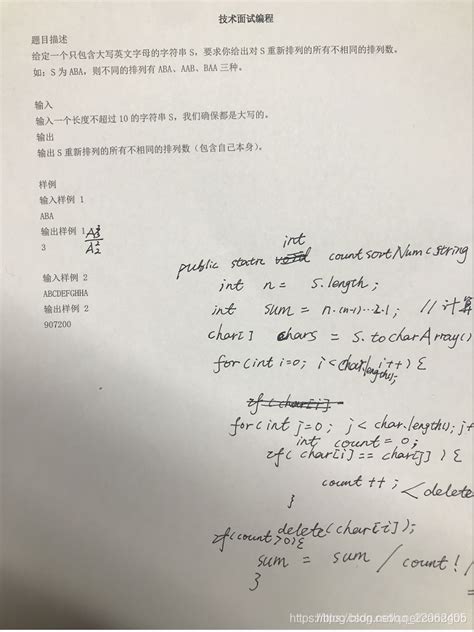 技术面试编程
题目描述
给定一个只包含大写英文字母的字符串 S，要求你给出对 S 重新排列的所有不相同的排列数。
如：S 为 ABA，则不同的排列有 ABA、AAB、BAA 三种。
输入
输入一个长度不超过 10 的字符串 S，我们确保都是大写的。
输出
输出 S 重新排列的所有不相同的排列数（包含自己本身）。
样例
输入样例 1
ABA
输出样例 1
3
A3/A2
输入样例 2
ABCDEFGHHA
输出样例 2
907200
int
public static void countsortNum(String
int n = S.length;
int sum = n·(n-1)···2·1; // 计算
char[] chars = S.toCharArray()
for(int i=0; i<char.length(); i++) {
if (char[i]
for(int j=0; j<char.length(); j+
int count = 0;
if( char[i] == char[j] ) {
count++; <delete
}
delete(char[i]);
if(count>0){
sum = sum / count! /
}